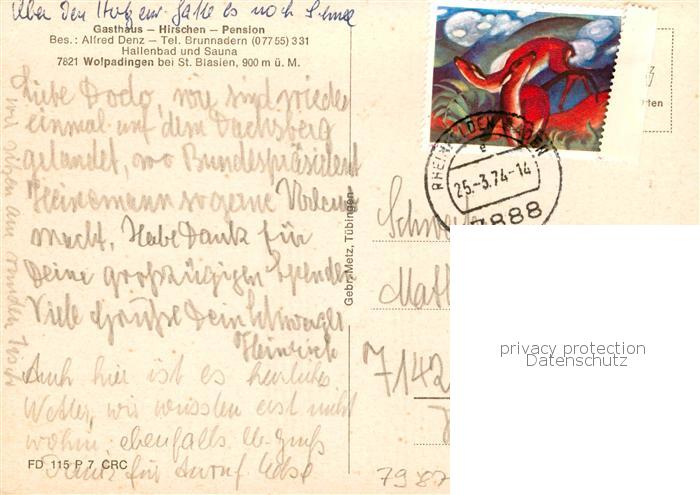 Über den Hotzenw. hatte es noch Schnee
Gasthaus – Hirschen – Pension
Bes.: Alfred Denz – Tel. Brunnadern (0 77 55) 3 31
Hallenbad und Sauna
7821 Wolpadingen bei St. Blasien, 900 m ü. M.
Liebe Dodo, wir sind wieder
einmal auf dem Dachsberg
gelandet, wo Bundespräsident
Heinemann so gerne
macht. Habe Dank für
Deine großzügigen Spenden
Viele Grüße Dein Schwager
Heinrich
Auch hier ist es herrliches
Wetter, wir wussten erst nicht
wohin, ebenfalls lb. Gruß
Dank für Anruf
wir sitzen am runden Tisch
FD 115 P 7 CRC
Gebr. Metz, Tübingen
RHEINFELDEN (BADEN)
e
25.-3.74-14
7888
7142
79 87
privacy protection
Datenschutz